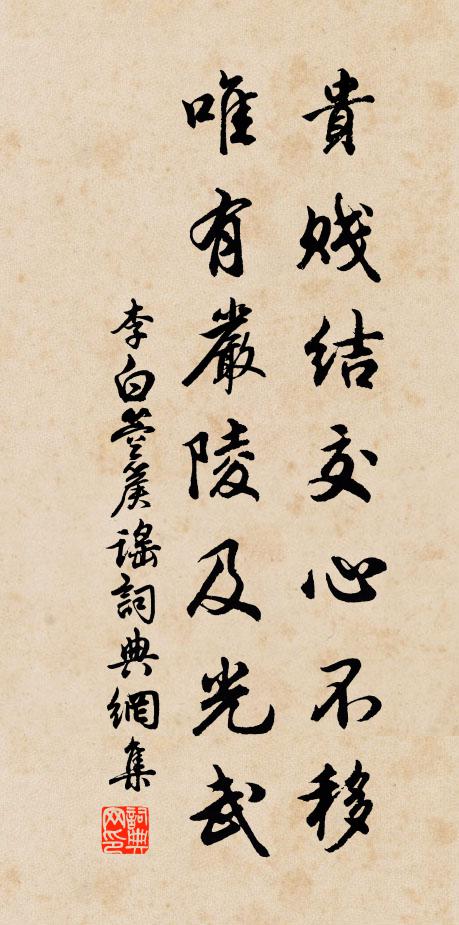 貴賤結交心不移
唯有嚴陵及光武
李白箜篌謠詞典網集
詞典网印